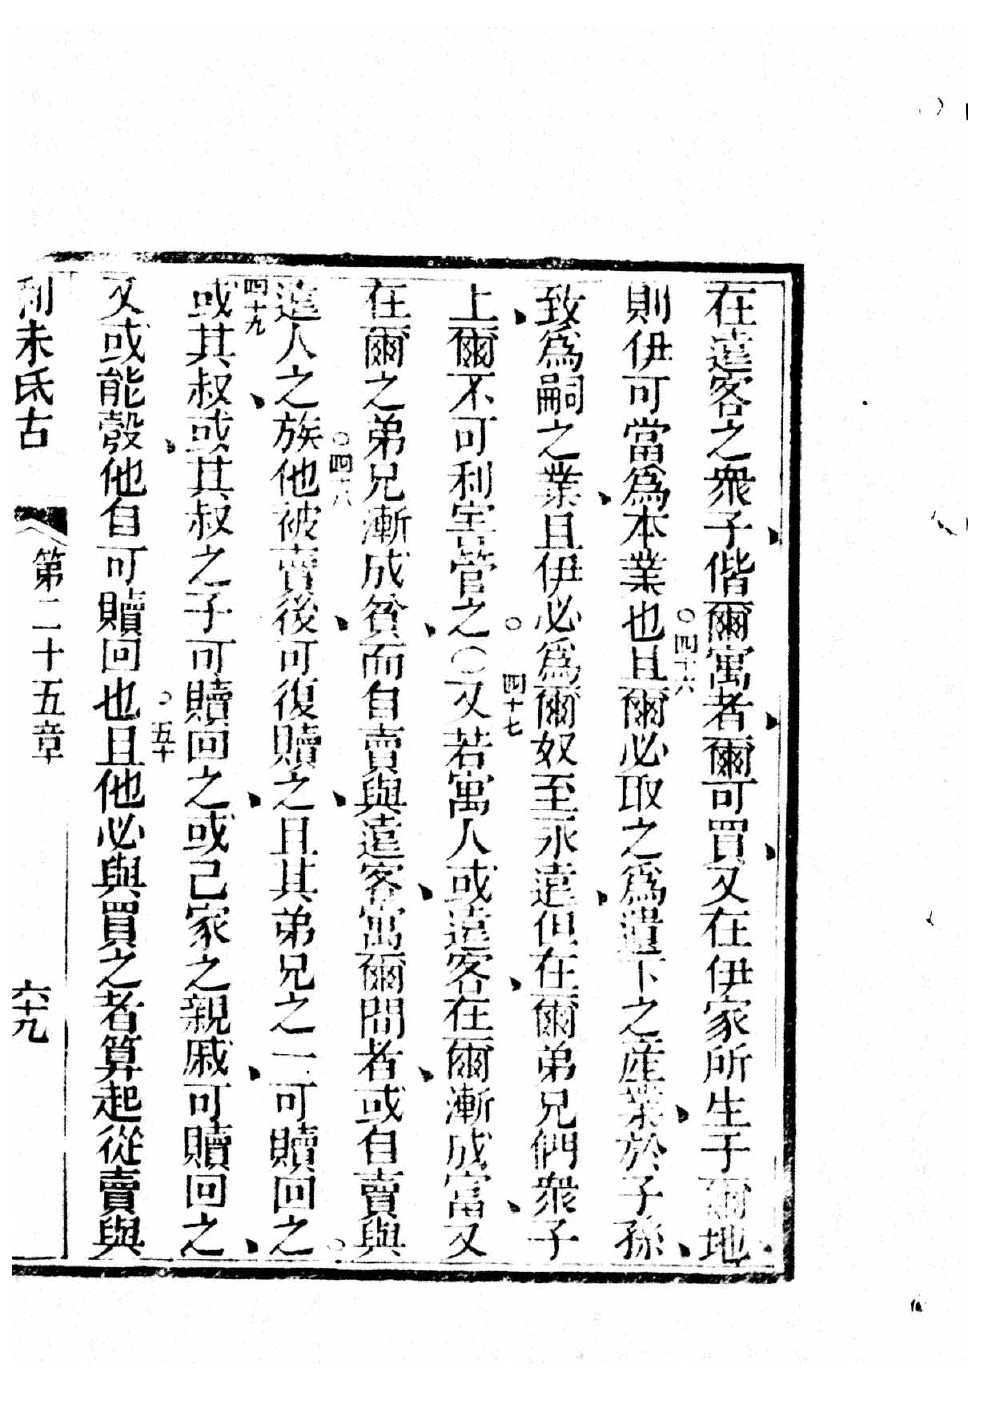 在遠客之衆子偕爾寓者爾可買又在伊家所生于爾地
則伊可當爲本業也且爾必取之爲遺下之產業於子孫
四十六
致爲嗣之業且伊必爲爾奴至永遠但在爾弟兄們衆子
上爾不可利害管之〇又若寓人或遠客在爾漸成富又
四十七
在爾之弟兄漸成貧而自賣與遠客寓爾間者或自賣與
遠人之族他被賣後可復贖之且其弟兄之一可贖回之
四十八
或其叔或其叔之子可贖回之或己家之親戚可贖回之
四十九
又或能彀他自可贖回也且他必與買之者算起從賣與
五十
利未氏古
第二十五章
六十九